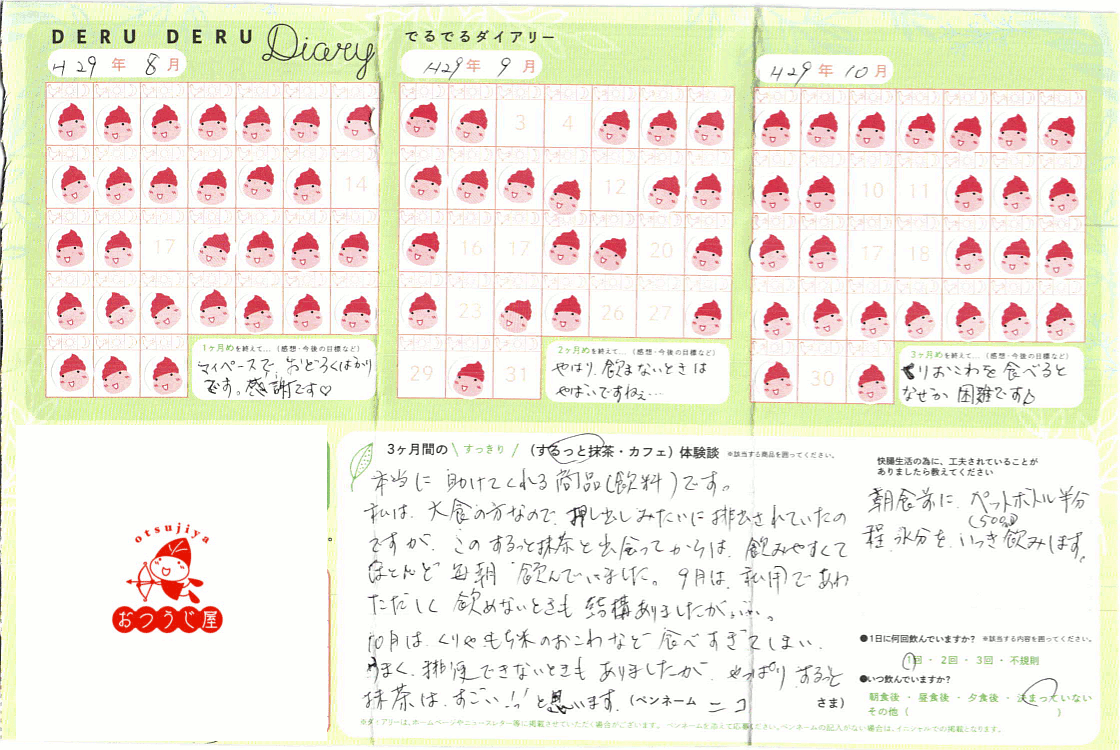 DERU DERU Diary
でるでるダイアリー
H29年 8月
H29年 9月
H29年 10月
14
17
3
4
12
16
17
20
23
26
27
29
31
10
11
17
18
30
1ヶ月めを終えて…（感想・今後の目標など）
マイペースで、おどろくばかり
です。感謝です♡
2ヶ月めを終えて…（感想・今後の目標など）
やはり、飲まないときは
やばいですねぇ…
3ヶ月めを終えて…（感想・今後の目標など）
くりおこわを食べると
なぜか 困難です
otsujiya
おつうじ屋
3ヶ月間の \ すっきり / （するっと抹茶・カフェ）体験談 ※該当する商品を囲ってください。
本当に 助けてくれる商品(飲料)です。
私は、大食の方なので、押し出しみたいに排出されていたの
ですが、このするっと抹茶と出会ってからは、飲みやすくて
ほとんど毎朝 飲んでいました。9月は、私用であわ
ただしく 飲めないときも 結構ありましたが…。
10月は、くりやもち米のおこわなど 食べすぎてしまい
うまく、排便できないときも ありましたが、やっぱり するっと
抹茶は、すごい!! と思います。（ペンネーム ニコ さま）
※ダイアリーは、ホームページやニュースレター等に掲載させていただく場合がございます。ペンネームを添えて応募ください。ペンネームの記入がない場合は、イニシャルでの掲載となります。
快腸生活の為に、工夫されていることが
ありましたら教えてください
朝食前に、ペットボトル半分
(500ml)
程、水分を、いっき飲みします。
●1日に何回飲んでいますか？ ※該当する内容を囲ってください。
1回・2回・3回・不規則
●いつ飲んでいますか？
朝食後・昼食後・夕食後・決まっていない
その他（ ）